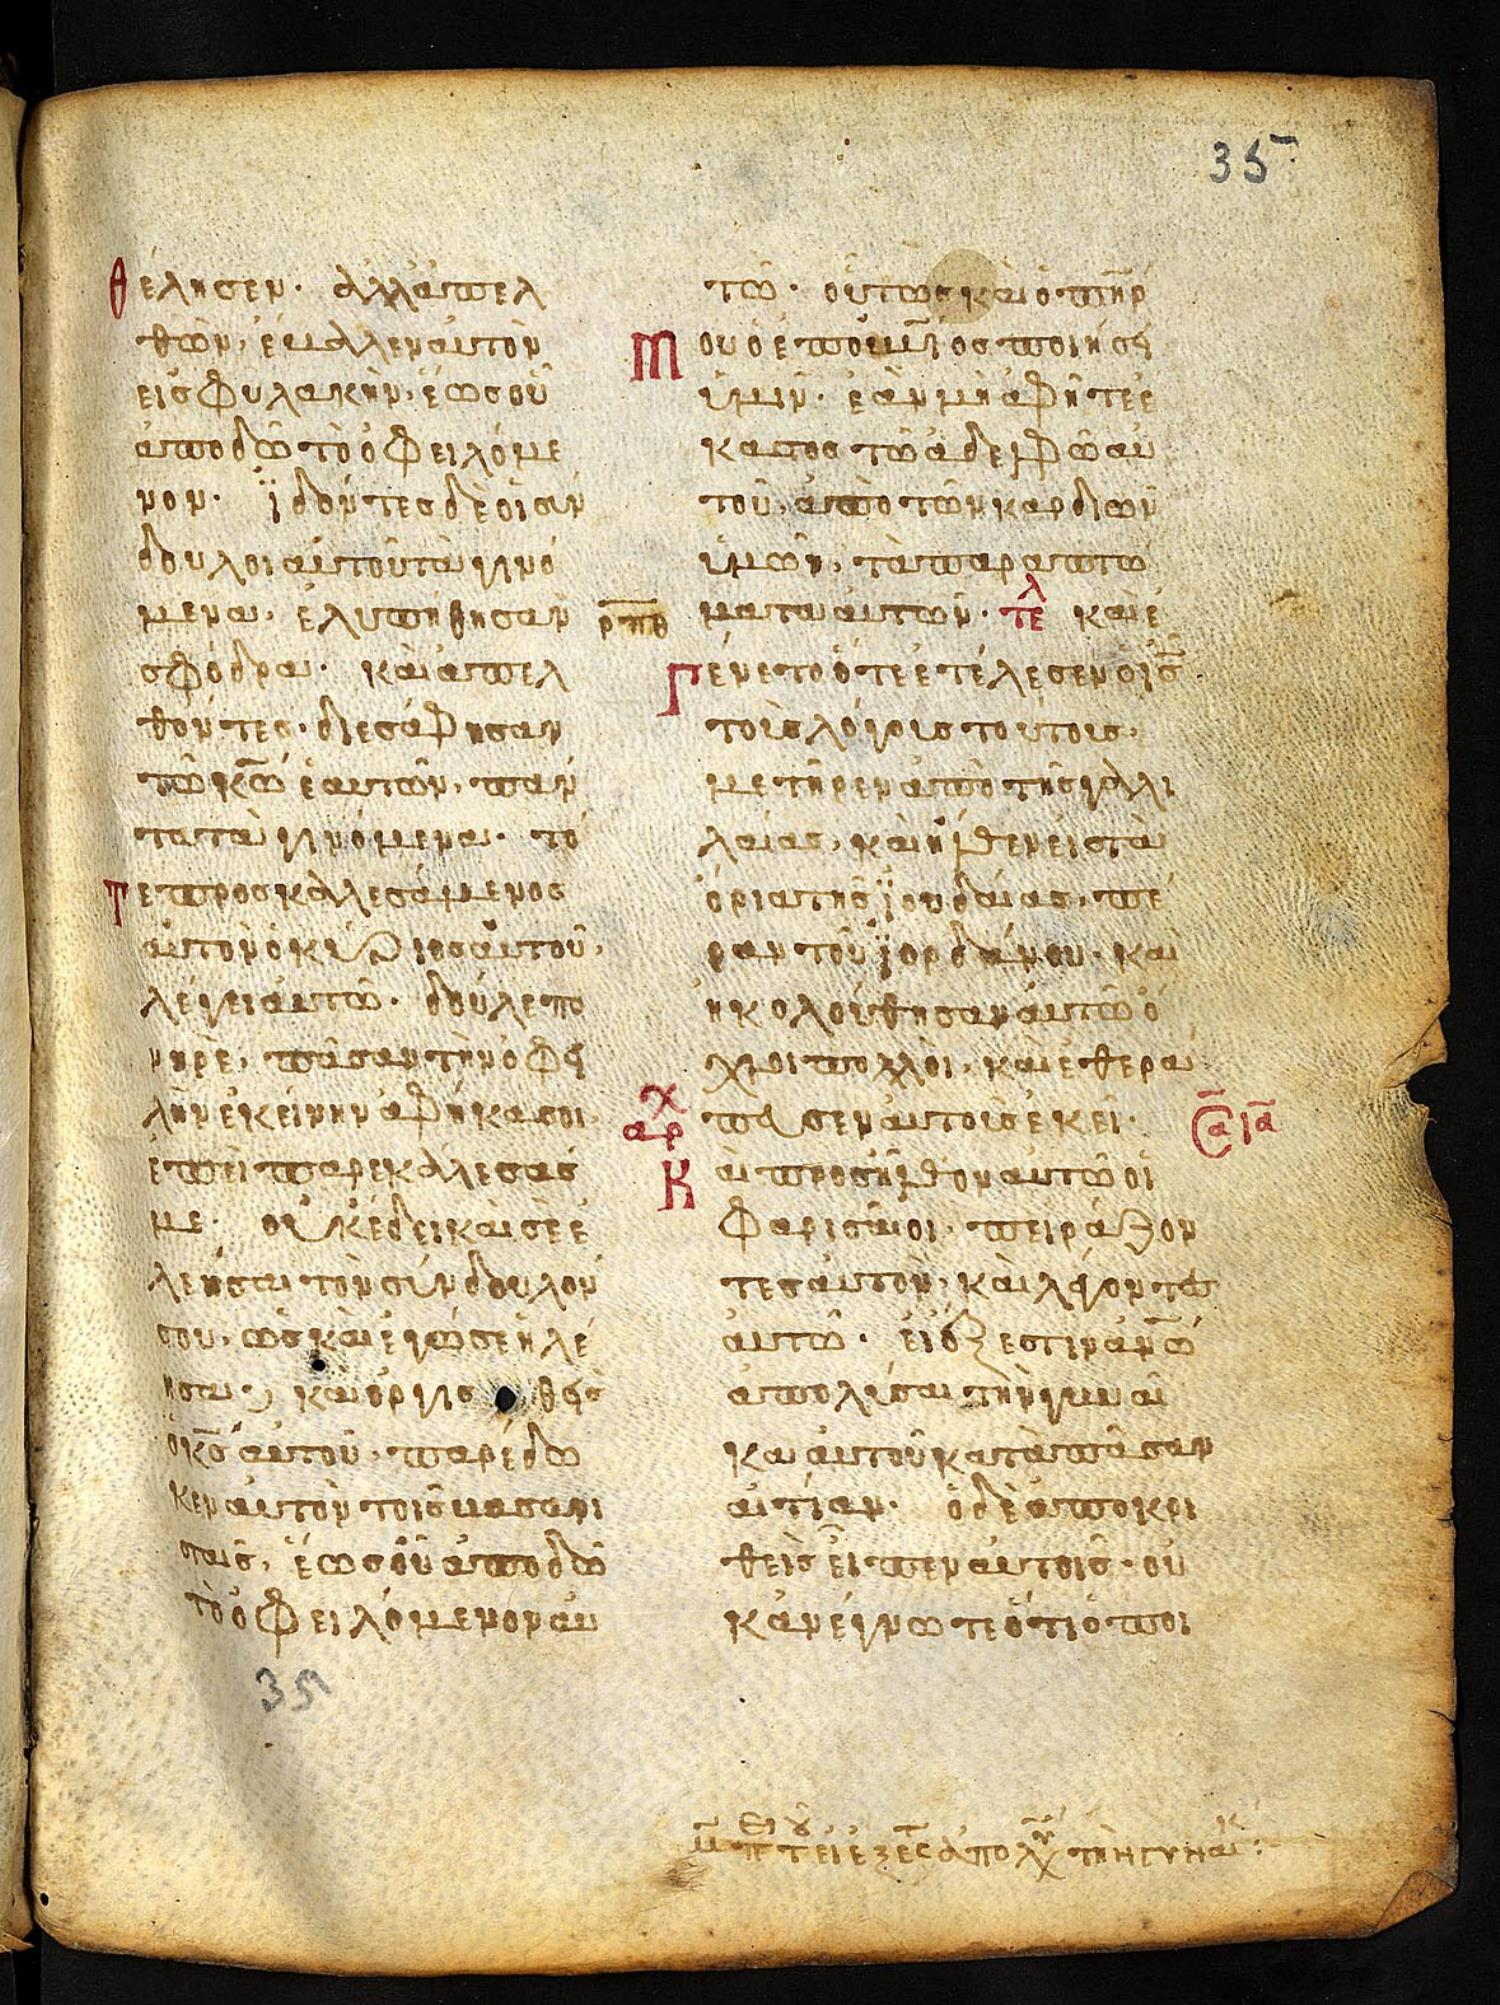 35
θέλησεν· ἀλλἀπελ
θὼν, ἔβαλλεν αὐτὸν
εἰς φυλακὴν, ἕως οὗ
ἀποδῶ τὸ ὀφειλόμε
νον· ϊδόντες δὲ οἱ σύν
δουλοι αὐτοῦ τὰ γινό
μενα, ἐλυπήθησαν
σφόδρα· καὶ ἀπελ
θόντες, διεσάφησαν
τῶ κ̅ω̅ ἑαυτῶν, πάν
τα τὰ γινόμενα· τό
τε προσκαλεσάμενος
αὐτὸν ὁ κύριος αὐτοῦ,
λέγει αὐτῶ· δοῦλε πο
νηρὲ, πᾶσαν τὴν ὀφει
λὴν ἐκείνην ἀφῆκα σοι,
ἐπεὶ παρεκάλεσάς
με· οὐκ ἔδει καὶ σὲ ἐ
λεῆσαι τὸν σύνδουλόν
σου, ὡς καὶ ἐγώ σε ἠλέ
ησα; καὶ ὀργισθεὶς
ὁ κ̅ς̅ αὐτοῦ, παρέδω
κεν αὐτὸν τοῖς βασανι
σταῖς, ἕως οὗ ἀποδῶ
τὸ ὀφειλόμενον αὐ
35
τῶ· οὕτως καὶ ὁ π̅η̅ρ̅
μου ὁ ἐπουράνιος ποιήσει
ὑμῖν· ἐὰν μὴ ἀφῆτε ἕ
καστος τῶ ἀδελφῶ αὐ
τοῦ, ἀπὸ τῶν καρδιῶν
ὑμῶν, τὰ παραπτώ
ματα αὐτῶν· τελ καὶ ἐ
γένετο ὅτε ἐτέλεσεν ὁ ι̅ς̅
τοὺς λόγους τούτους,
μετῆρεν ἀπὸ τῆς γαλι
λαίας, καὶ ἦλθεν εἰς τὰ
ὅρια τῆς ϊουδαίας, πέ
ραν τοῦ ϊορδάνου· καὶ
ἠκολούθησαν αὐτῶ ὄ
χλοι πολλοὶ, καὶ ἐθερά
αρχ πευσεν αὐτοὺς ἐκεῖ·
καὶ προσῆλθον αὐτῶ οἱ
φαρισαῖοι, πειράζον
τες αὐτὸν, καὶ λέγοντες
αὐτῶ· εἰ ἔξεστιν ἀ̅ν̅ω̅
ἀπολῦσαι τὴν γυναῖ
κα αὐτοῦ κατὰ πᾶσαν
αἰτίαν· ὁ δὲ ἀποκρι
θεὶς εἶπεν αὐτοῖς· οὐ
κ ἀνέγνωτε ὅτι ὁ ποι